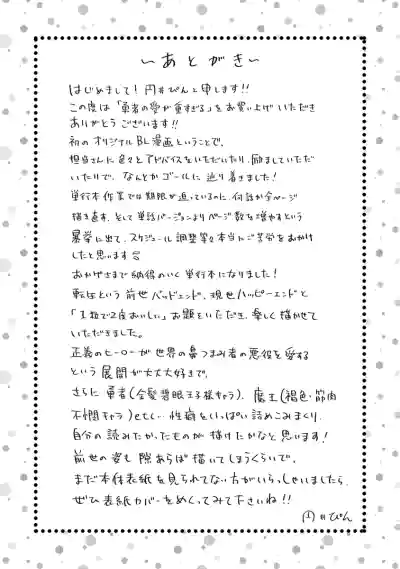 ～あとがき～
はじめまして！円井ぴんと申します!!
この度は「勇者の愛が重すぎる」をお買い上げいただき
ありがとうございます!!
初のオリジナルBL漫画ということで、
担当さんに色々とアドバイスをいただいたり、励ましていただ
いたりで、なんとかゴールに辿り着きました！
単行本作業では期限が迫っているのに、何話か全ページ
描き直す、そして単話バージョンよりページ数を増やすという
暴挙に出て、スケジュール調整等々本当にご苦労をおかけ
したと思います
おかげさまで納得のいく単行本になりました！
転生という前世バッドエンド、現世ハッピーエンドと
「1粒で2度おいしい」お題をいただき、楽しく描かせて
いただきました。
正義のヒーローが世界の鼻つまみ者の悪役を愛する
という展開が大大大好きで、
さらに勇者(金髪碧眼王子様キャラ)、魔王(褐色・筋肉
不憫キャラ)etc…性癖をいっぱい詰めこみまくり、
自分の読みたかったものが描けたかなと思います！
前世の姿も隙あらば描いてしまうくらいで、
まだ本体表紙を見られてない方がいらっしゃいましたら、
ぜひ表紙カバーをめくってみて下さいね!!
円井ぴん